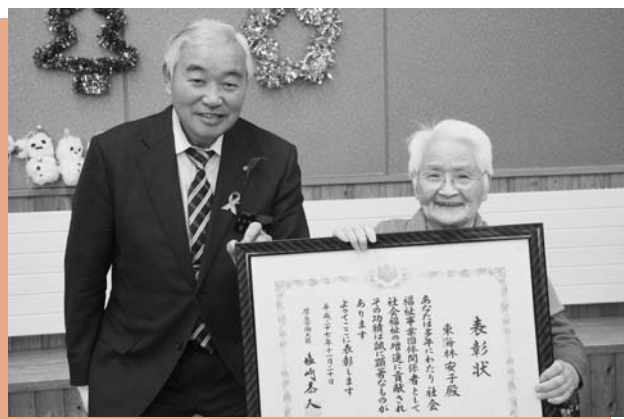 表彰状
東海林安子殿
あなたは多年にわたり社会
福祉事業団体関係者として
社会福祉の増進に貢献され
その功績は誠に顕著なものが
あります
よってここに表彰します
平成二十七年十一月二十日
厚生労働大臣 塩崎恭久